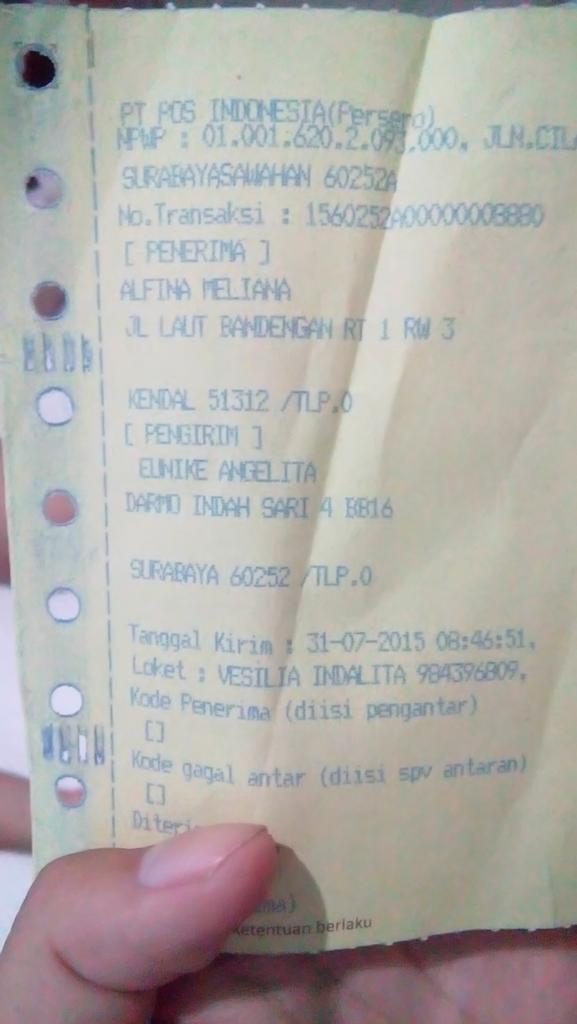 PT POS INDONESIA(Persero)
NPWP : 01.001.620.2.093.000, JLN.CIL
SURABAYASAWAHAN 60252A
No.Transaksi : 1560252A00000008880
[ PENERIMA ]
ALFINA MELIANA
JL LAUT BANDENGAN RT 1 RW 3
KENDAL 51312 /TLP.0
[ PENGIRIM ]
EUNIKE ANGELITA
DARMO INDAH SARI 4 BB16
SURABAYA 60252 /TLP.0
Tanggal Kirim : 31-07-2015 08:46:51,
Loket : VESILIA INDALITA 984396809,
Kode Penerima (diisi pengantar)
[]
Kode gagal antar (diisi spv antaran)
[]
Diteri
ima)
ketentuan berlaku